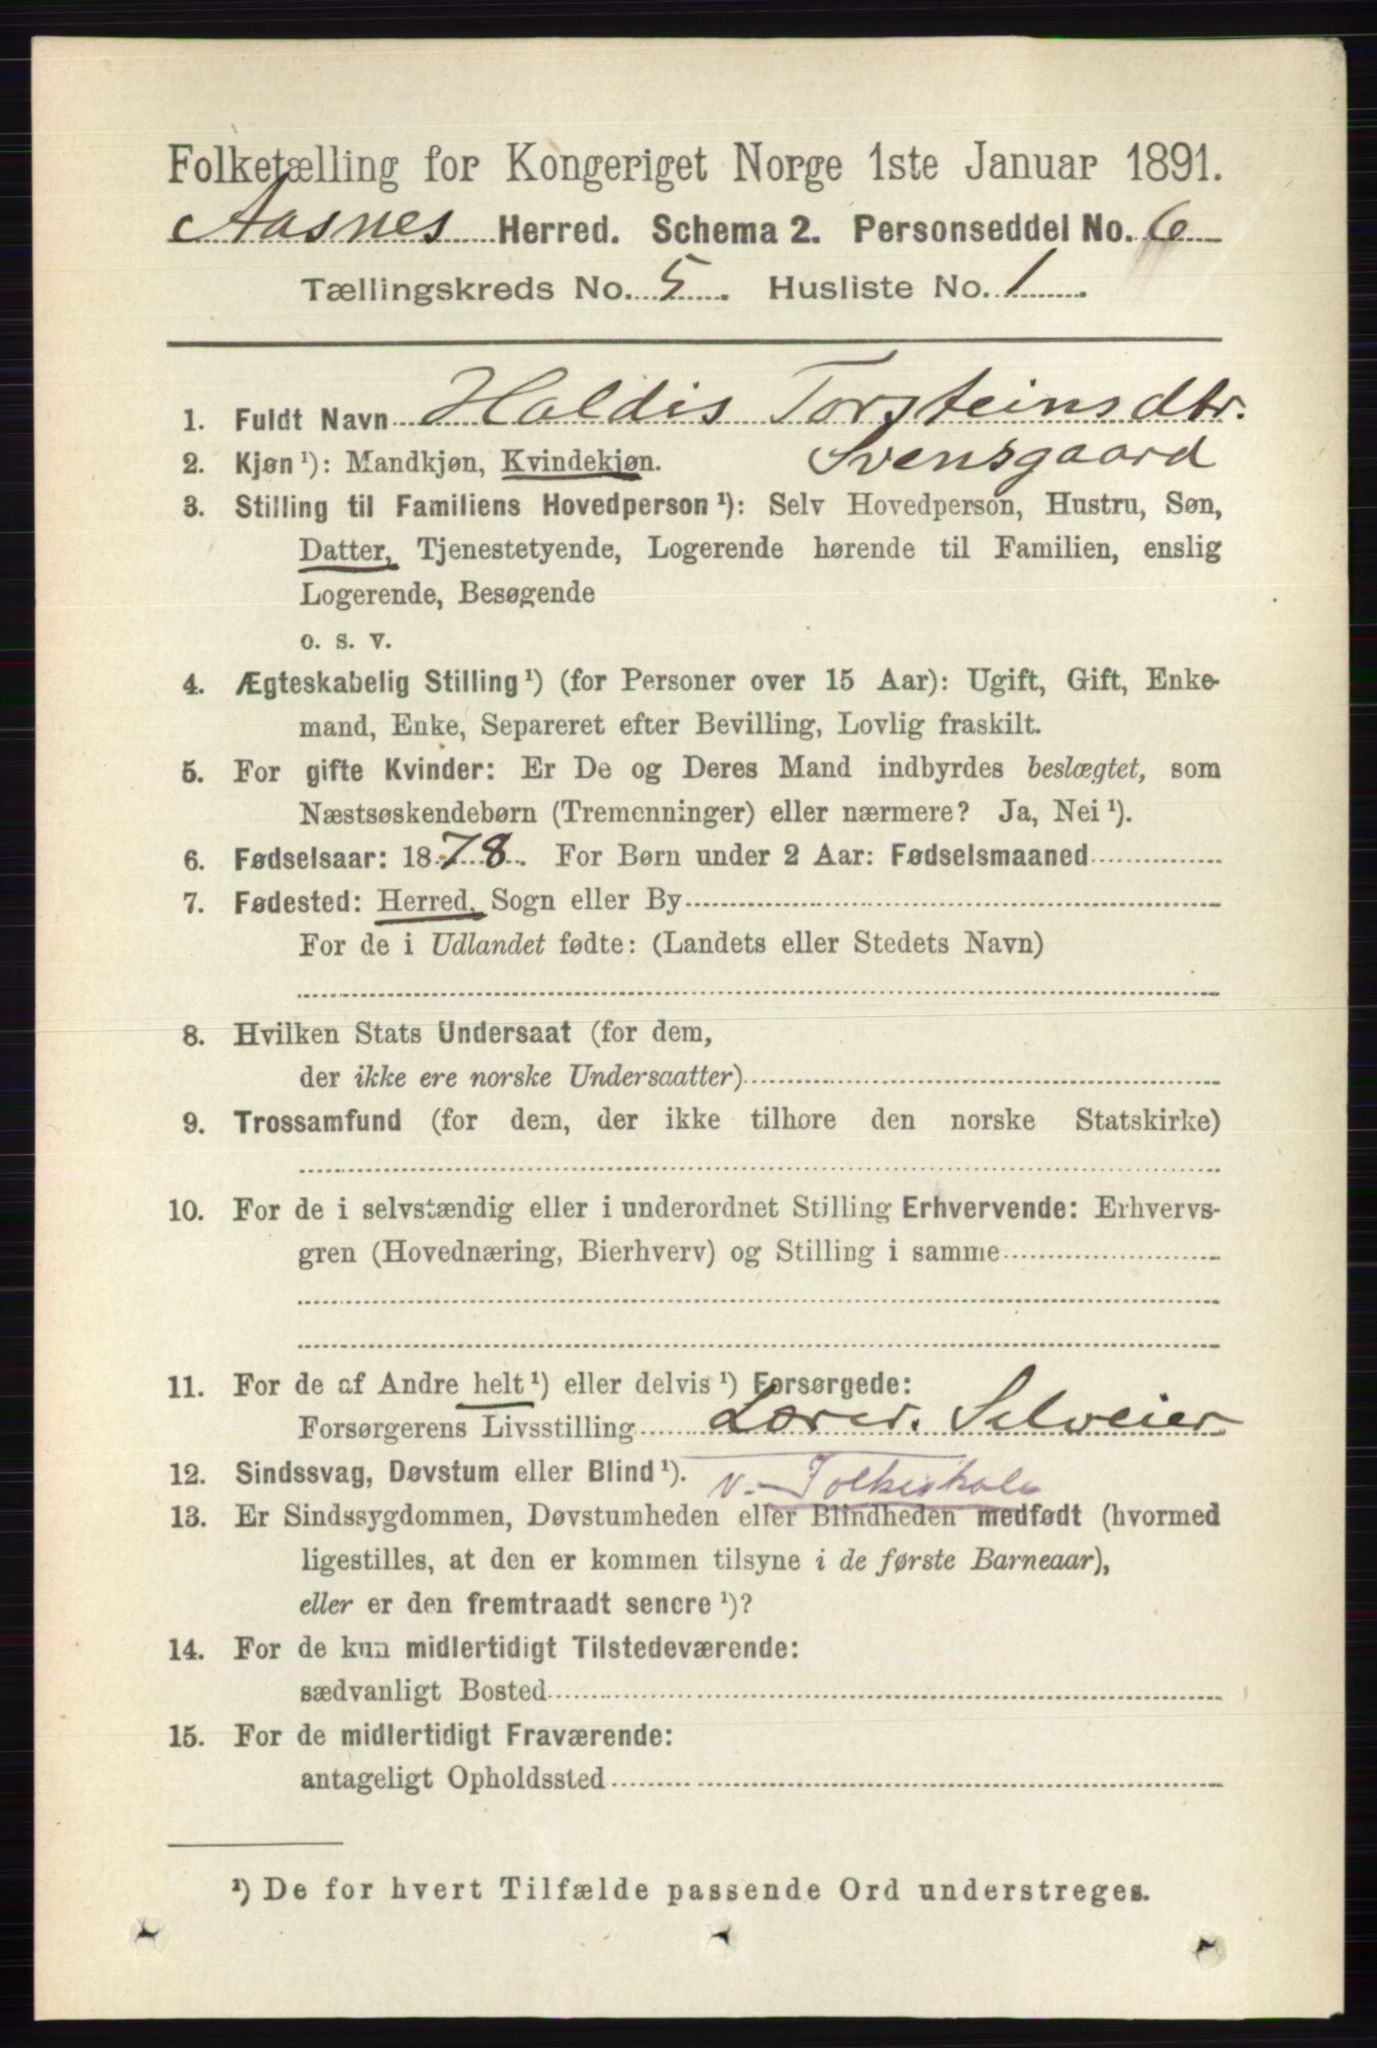 Folketælling for Kongeriget Norge 1ste Januar 1891.
Aasnes Herred. Schema 2. Personseddel No. 6
Tællingskreds No. 5. Husliste No. 1.
1. Fuldt Navn Haldis Torsteinsdtr.
Svensgaard
2. Kjøn ¹): Mandkjøn, Kvindekjøn.
3. Stilling til Familiens Hovedperson ¹): Selv Hovedperson, Hustru, Søn,
Datter, Tjenestetyende, Logerende hørende til Familien, enslig
Logerende, Besøgende
o. s. v.
4. Ægteskabelig Stilling ¹) (for Personer over 15 Aar): Ugift, Gift, Enke-
mand, Enke, Separeret efter Bevilling, Lovlig fraskilt.
5. For gifte Kvinder: Er De og Deres Mand indbyrdes beslægtet, som
Næstsøskendebørn (Tremenninger) eller nærmere? Ja, Nei ¹).
6. Fødselsaar: 1878. For Børn under 2 Aar: Fødselsmaaned
7. Fødested: Herred, Sogn eller By
For de i Udlandet fødte: (Landets eller Stedets Navn)
8. Hvilken Stats Undersaat (for dem,
der ikke ere norske Undersaatter)
9. Trossamfund (for dem, der ikke tilhøre den norske Statskirke)
10. For de i selvstændig eller i underordnet Stilling Erhvervende: Erhvervs-
gren (Hovednæring, Bierhverv) og Stilling i samme
11. For de af Andre helt ¹) eller delvis ¹) Forsørgede:
Forsørgerens Livsstilling Lærer. Selveier
v. Folkeskole
12. Sindssvag, Døvstum eller Blind ¹).
13. Er Sindssygdommen, Døvstumheden eller Blindheden medfødt (hvormed
ligestilles, at den er kommen tilsyne i de første Barneaar),
eller er den fremtraadt senere ¹)?
14. For de kun midlertidigt Tilstedeværende:
sædvanligt Bosted
15. For de midlertidigt Fraværende:
antageligt Opholdssted
¹) De for hvert Tilfælde passende Ord understreges.